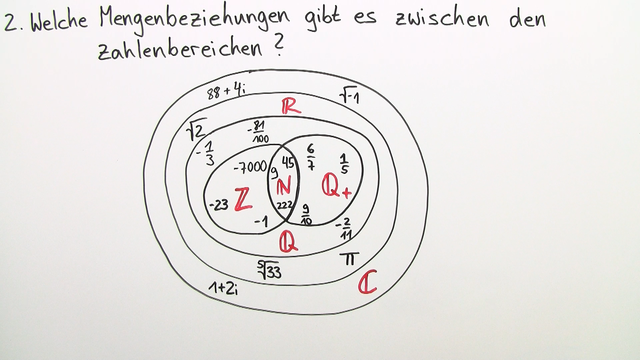 2. Welche Mengenbeziehungen gibt es zwischen den
Zahlenbereichen?
88 + 4i
√-1
ℝ
√2
-81/100
-1/3
6/7
1/5
-7000
9
45
ℕ
ℚ+
-23
ℤ
222
9/10
-1
-2/11
ℚ
π
⁵√33
1+2i
ℂ